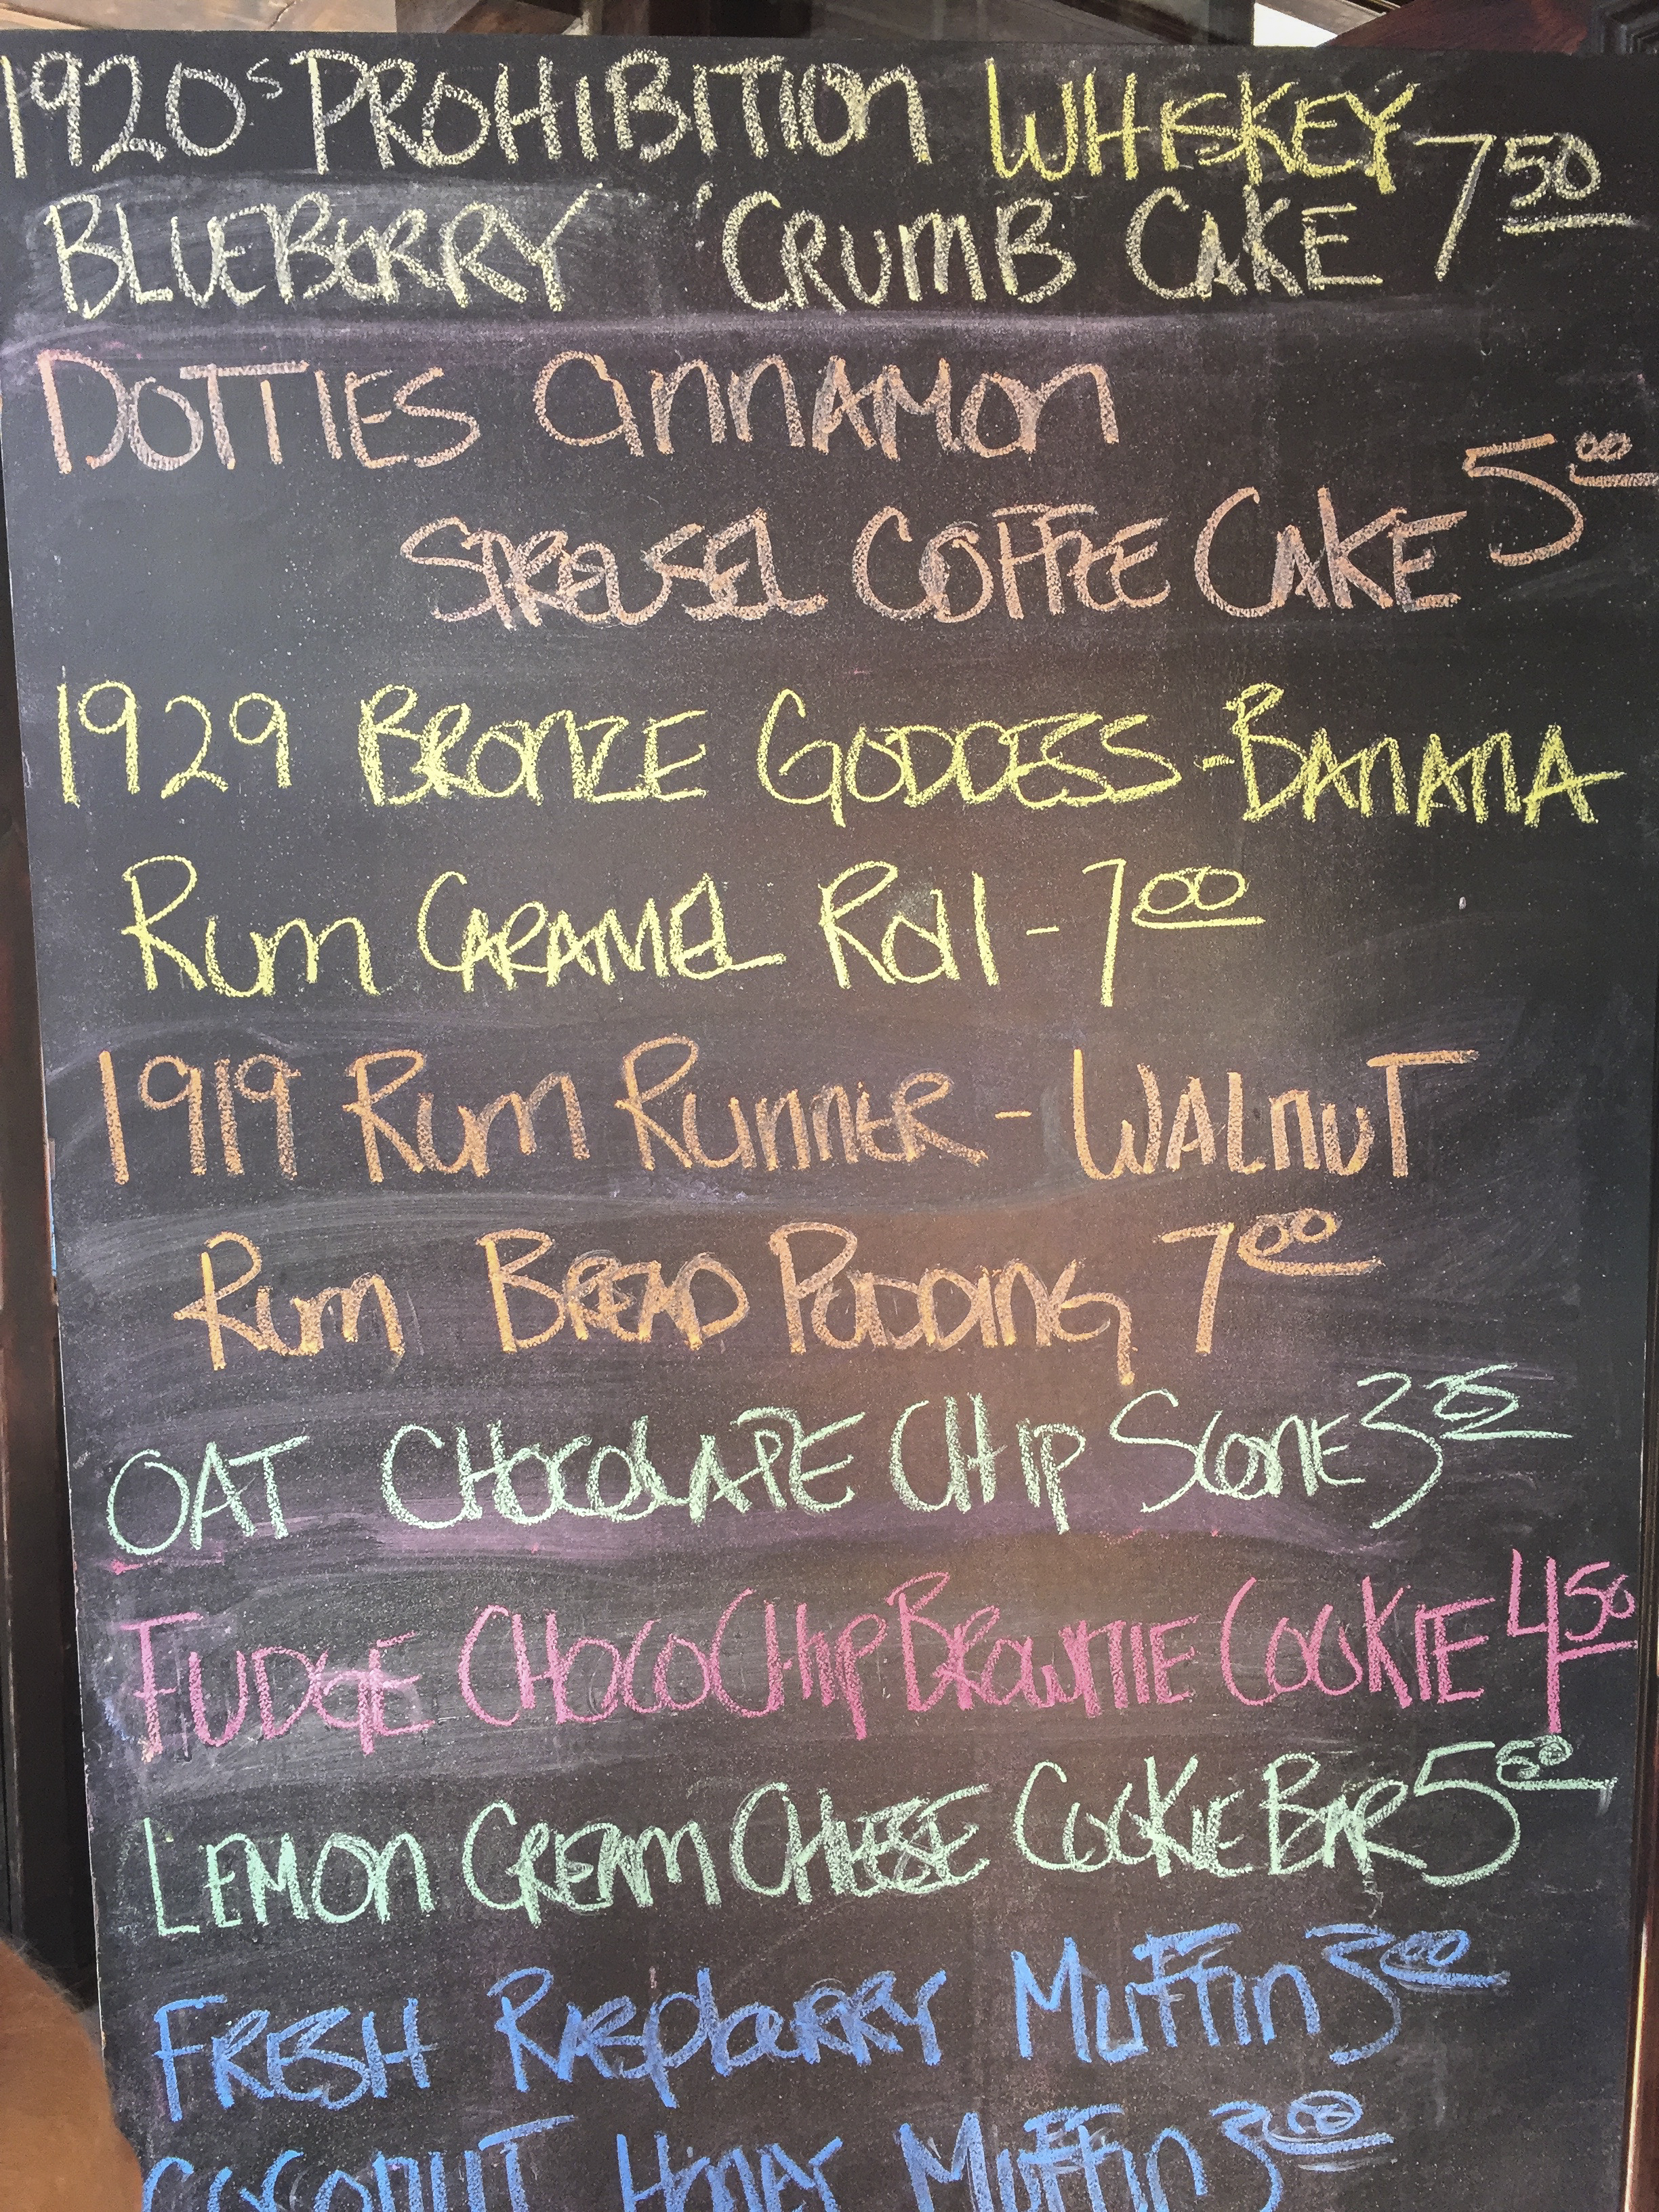 1920s PROHIBITION WHISKEY 7 50
BLUEBERRY CRUMB CAKE
DOTTIES CINNAMON
STREUSEL COFFEE CAKE 5 00
1929 BRONZE GODDESS - BANANA
RUM CARAMEL ROLL - 7 00
1919 RUM RUNNER - WALNUT
RUM BREAD PUDDING 7 00
OAT CHOCOLATE CHIP SCONE 3 25
FUDGE CHOCO CHIP BROWNIE COOKIE 4 50
LEMON CREAM CHEESE COOKIE BAR 5 00
FRESH RASPBERRY MUFFIN 3 00
COCONUT HONEY MUFFIN 3 00